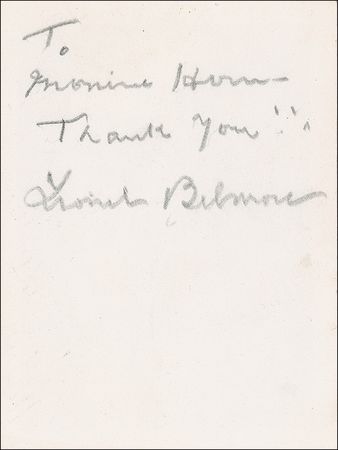 To
Horn-
Thank You!!
Lionel Belmore